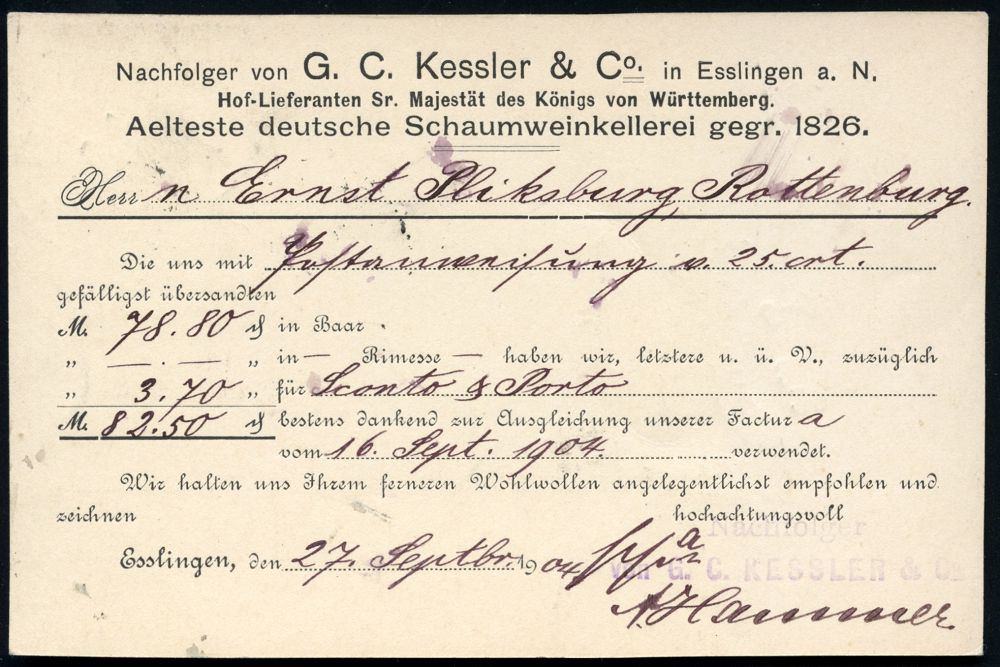 Nachfolger von G. C. Kessler & Co. in Esslingen a. N.
Hof-Lieferanten Sr. Majestät des Königs von Württemberg.
Aelteste deutsche Schaumweinkellerei gegr. 1826.
Herr n Ernst Pliksburg Rottenburg.
Die uns mit Postanweisung v. 25. crt.
gefälligst übersandten
M. 78.80 ₰ in Baar
„ —.— „ in — Rimesse — haben wir, letztere u. ü. V., zuzüglich
„ 3.70 „ für Sconto & Porto
M. 82.50 ₰ bestens dankend zur Ausgleichung unserer Factura
vom 16. Sept. 1904. verwendet.
Wir halten uns Ihrem ferneren Wohlwollen angelegentlichst empfohlen und
zeichnen hochachtungsvoll
Nachfolger
Esslingen, den 27. Septbr. 1904
von G. C. KESSLER & Co
A. Hammer